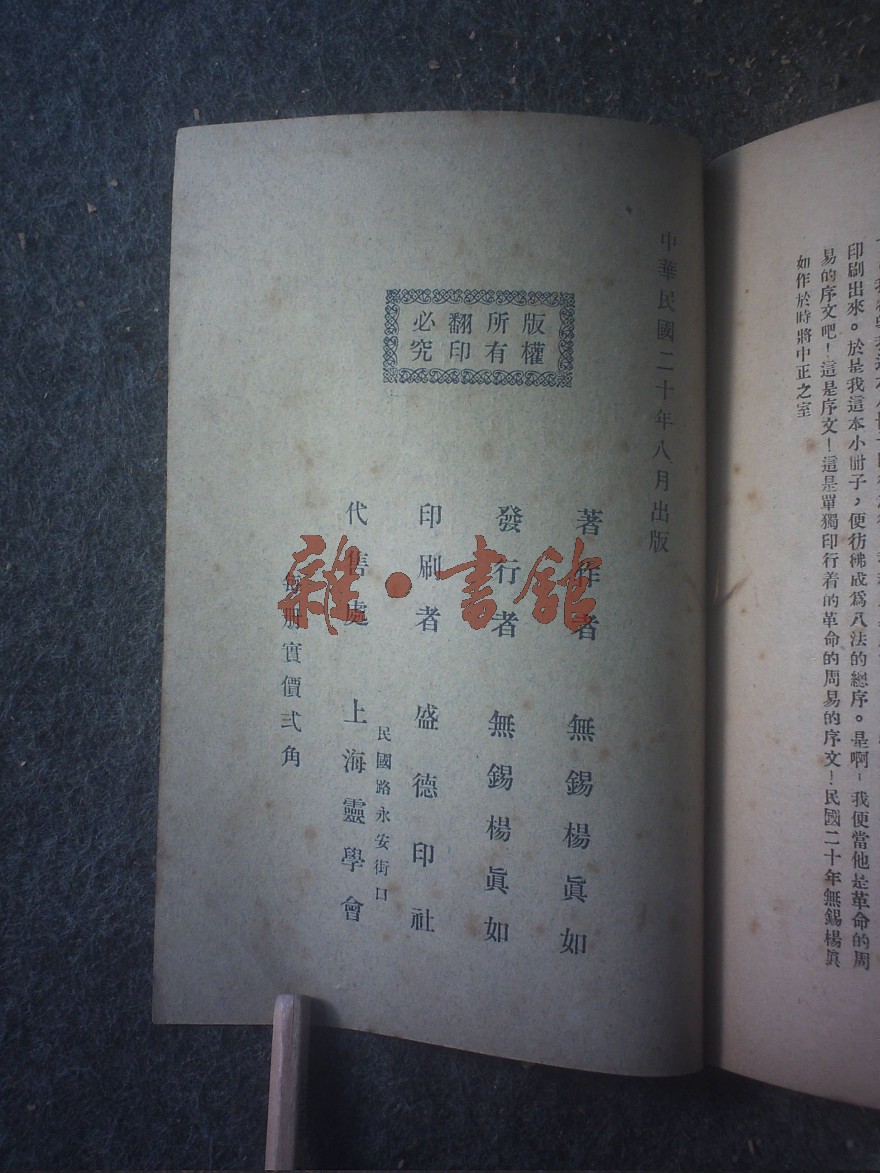 印刷出來。於是我這本小冊子，便彷彿成爲八法的總序。是啊！我便當他是革命的周
易的序文吧！這是序文！這是單獨印行着的革命的周易的序文！民國二十年無錫楊眞
如作於時將中正之室
中華民國二十年八月出版
版權
所有
翻印
必究
著作者 無錫楊眞如
發行者 無錫楊眞如
印刷者 盛德印社
民國路永安街口
代售處 上海靈學會
每册實價弍角
雜·書館